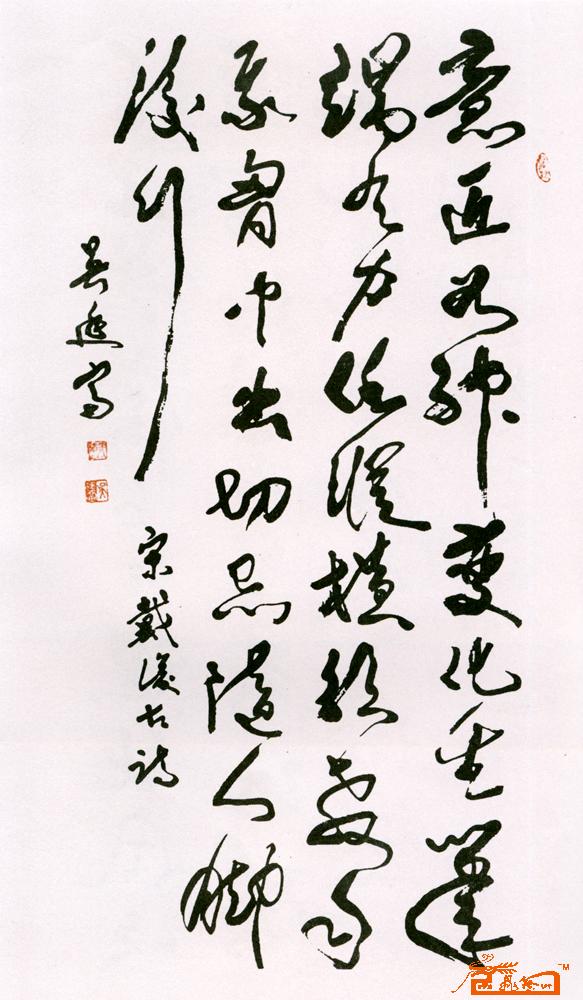 意匠如神變化生筆
端有力任縱橫須教自
我胸中出切忌隨人脚
後行 宋戴復古詩
吴